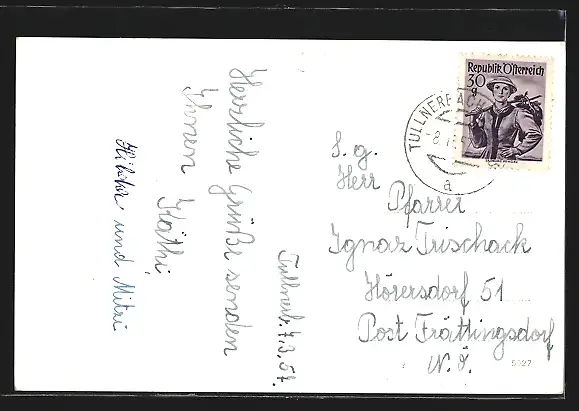 Herzliche Grüße senden
Ihnen Käthi
und Mitzi
Tullnerb. 7.3.57.
TULLNERBACH
8.
a
Republik Österreich
30 g
S. g.
Herr
Pfarrer
Ignaz Trischack
Hörersdorf 51
Post Frättingsdorf
N. Ö.
5927